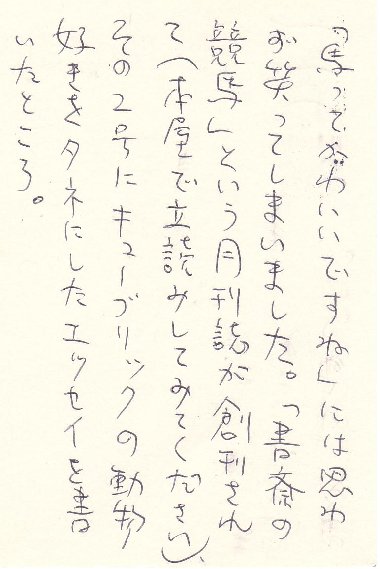 「馬ってかわいいですね」には思わ
ず笑ってしまいました。「書斎の
競馬」という月刊誌が創刊され
て(本屋で立読みしてみてください)、
その2号にキューブリックの動物
好きをタネにしたエッセイを書
いたところ。